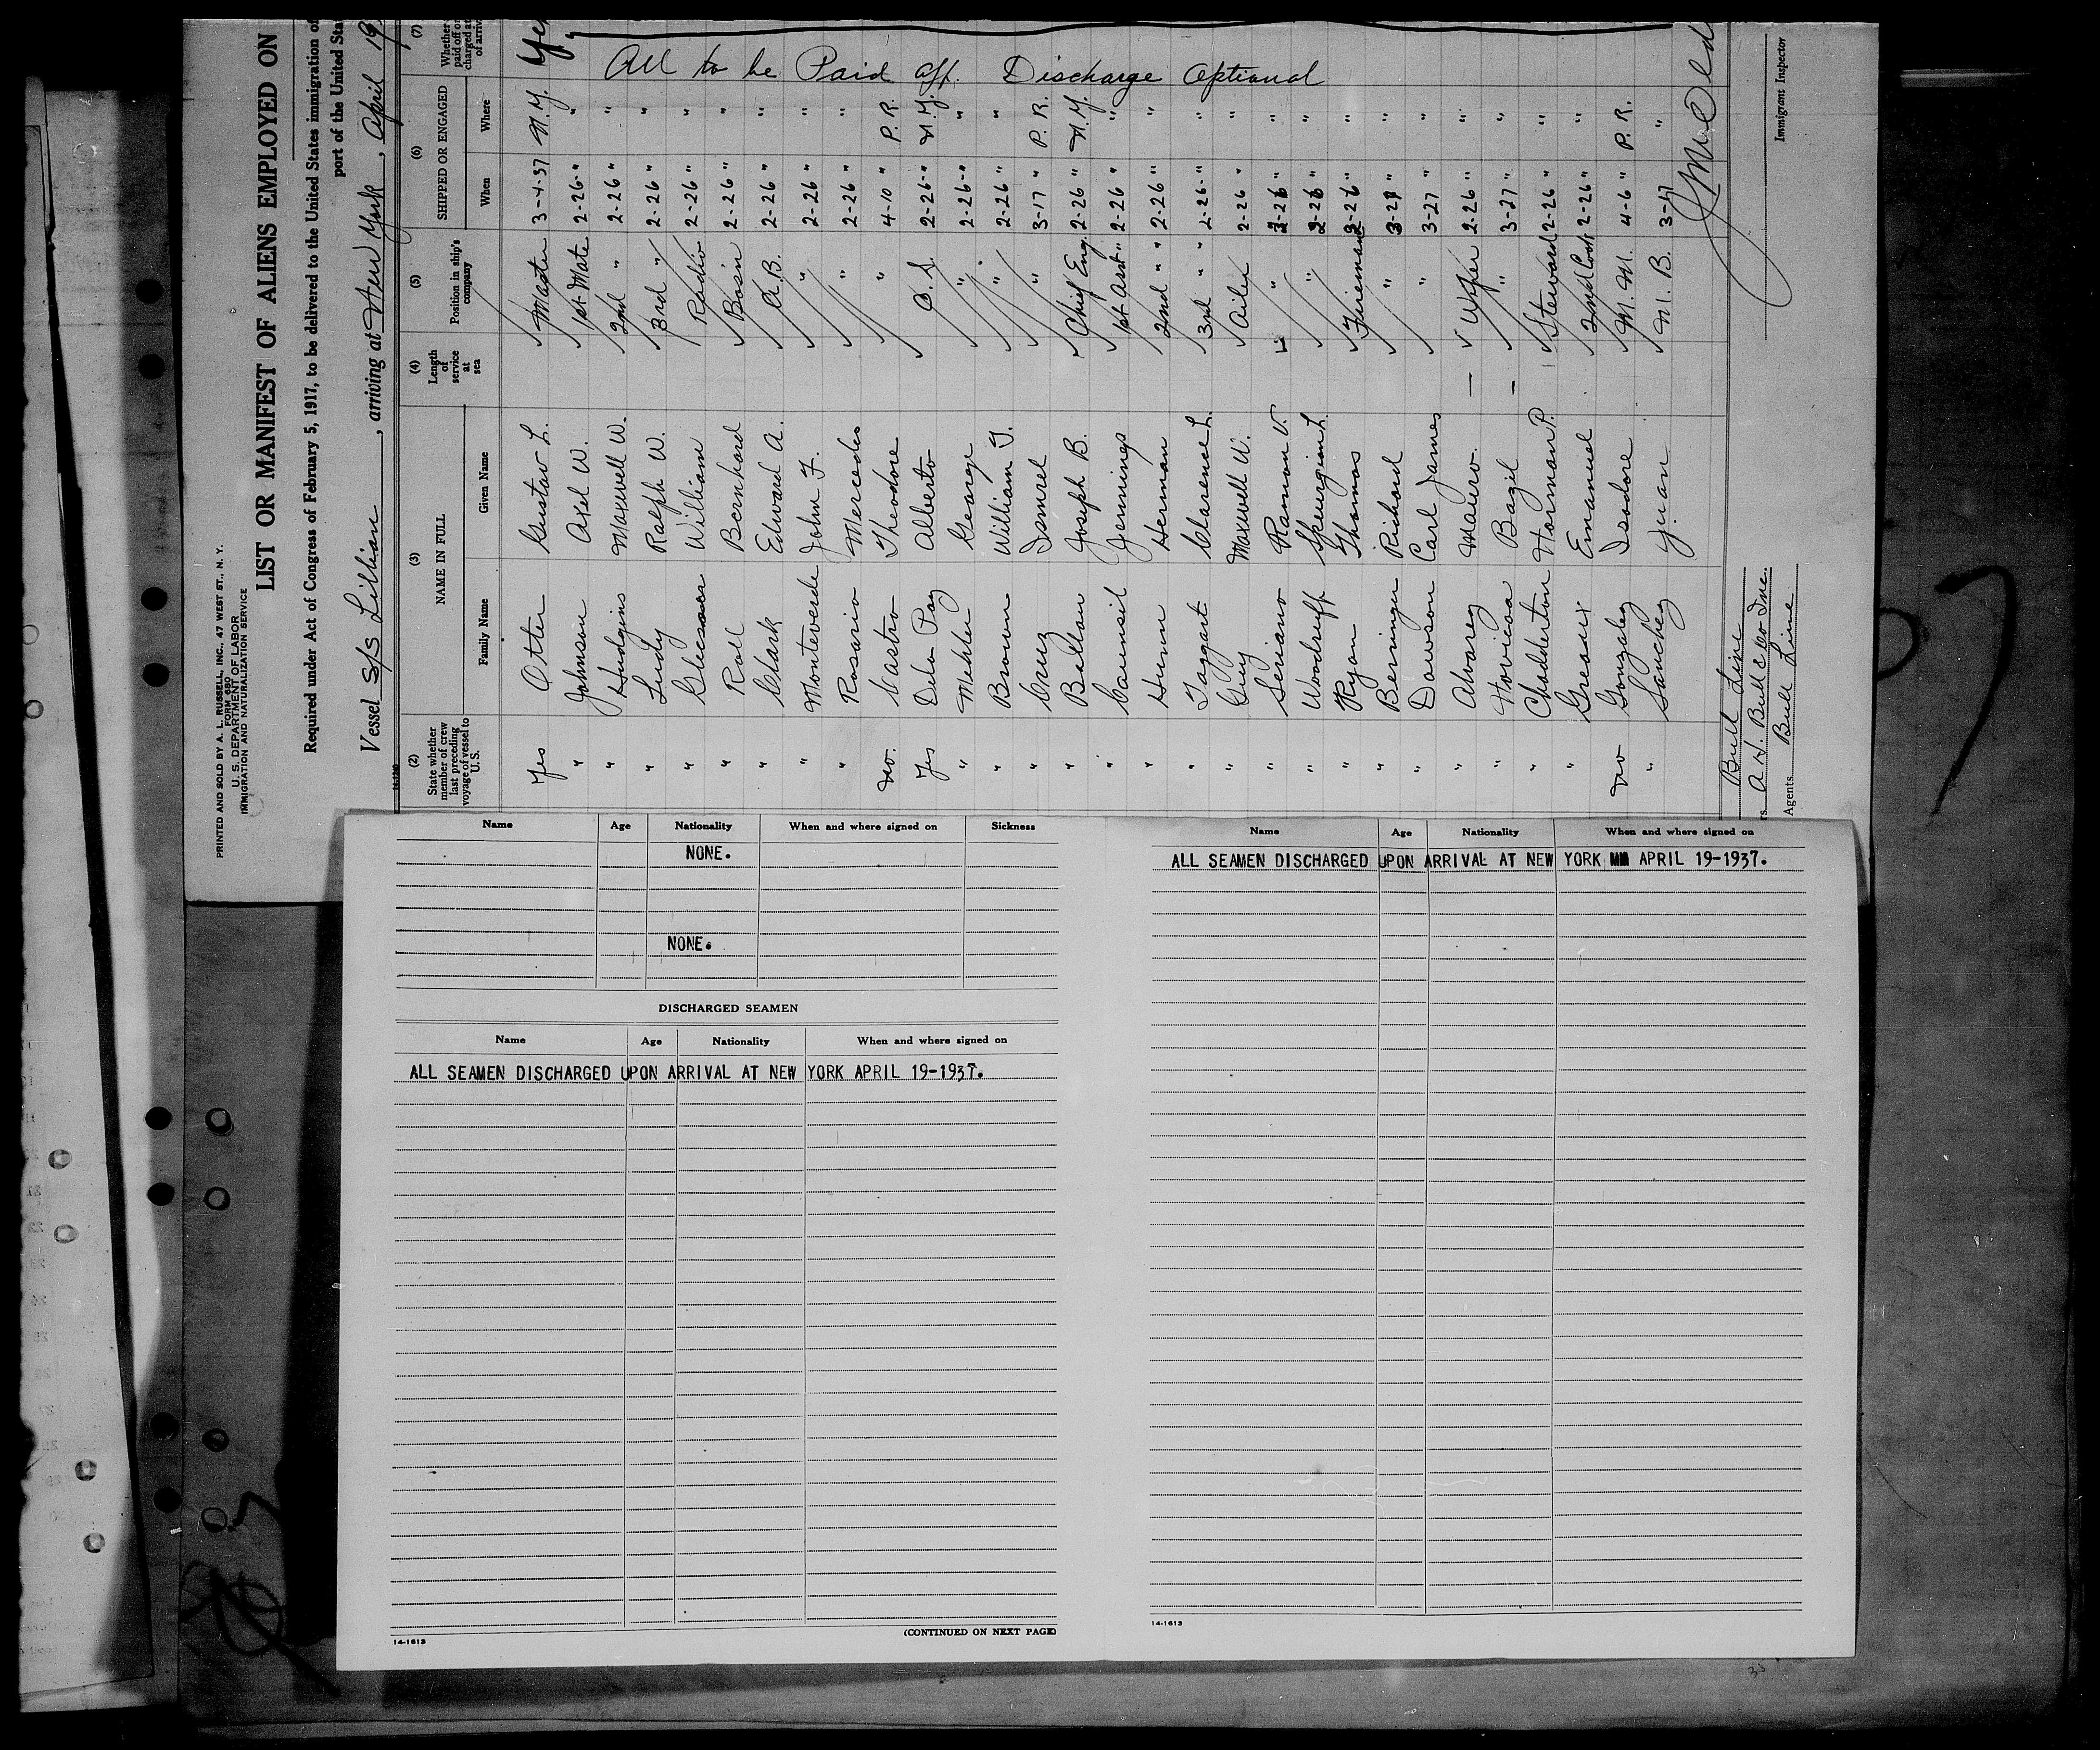 PRINTED AND SOLD BY A. L. RUSSELL, INC., 47 WEST ST., N. Y.
FORM 680
U. S. DEPARTMENT OF LABOR
IMMIGRATION AND NATURALIZATION SERVICE
LIST OR MANIFEST OF ALIENS EMPLOYED ON
Required under Act of Congress of February 5, 1917, to be delivered to the United States immigration of
port of the United Sta
Vessel S/S Lillian, arriving at New York, April 19
(2) State whether member of crew last preceding voyage of vessel to U.S. (3) NAME IN FULL Family Name Given Name (4) Length of service at sea (5) Position in ship's company (6) SHIPPED OR ENGAGED When Where (7) Whether paid off or charged at of arriv
Yes Otten Gustav L. Master 3-1-37 N.Y. Yes
" Johnson Axel W. 1st Mate 2-26 " "
" Hudgins Maxwell W. 2nd " 2-26 " "
" Ludy Ralph W. 3rd " 2-26 " "
" William Radio 2-26 " "
" Roll Bernhard Bosn 2-26 " "
" Clark Edward A. A.B. 2-26 " "
" Monteverde John F. " 2-26 " "
" Rosario Mercedes " 2-26 " "
No. Castro Theodore " 4-10 " P.R.
Yes Dela Paz Alberto O.S. 2-26 " N.Y.
" George " 2-26 " "
" Brown William T. " 2-26 " "
" Cruz Ismrel " 3-17 " P.R.
" Bellan Joseph B. Chief Eng. 2-26 " N.Y.
" Counsil Jennings 1st Asst " 2-26 " "
" Herman 2nd " " 2-26 " "
" Taggart Clarence L. 3rd " " 2-26 " "
" Guy Maxwell W. Oiler 2-26 " "
" Seriano Ramon V. " 2-26 " "
" Woodruff Spurgion L. " 2-26 " "
" Ryan Thomas Fireman 2-26 " "
" Berninger Richard " 3-27 " "
" Dawson Carl James " 3-27 " "
" Alvarez Mauro. Wiper 2-26 " "
" Bazil " 3-27 " "
" Chadderton Horman P. Steward 2-26 " "
" Greaux Emanuel 2nd Cook 2-26 " "
No Gonzalez Isodore M.M. 4-6 " P.R.
" Sanchez Juan M.B. 3-17 "
All to be Paid off. Discharge Optional
Bull Line
A. H. Bull & Co Inc.
Agents Bull Line
Immigrant Inspector
Name Age Nationality When and where signed on Sickness
NONE.
NONE.
DISCHARGED SEAMEN
Name Age Nationality When and where signed on
ALL SEAMEN DISCHARGED UPON ARRIVAL AT NEW YORK APRIL 19-1937.
14-1613
(CONTINUED ON NEXT PAGE)
Name Age Nationality When and where signed on
ALL SEAMEN DISCHARGED UPON ARRIVAL AT NEW YORK APRIL 19-1937.
14-1613